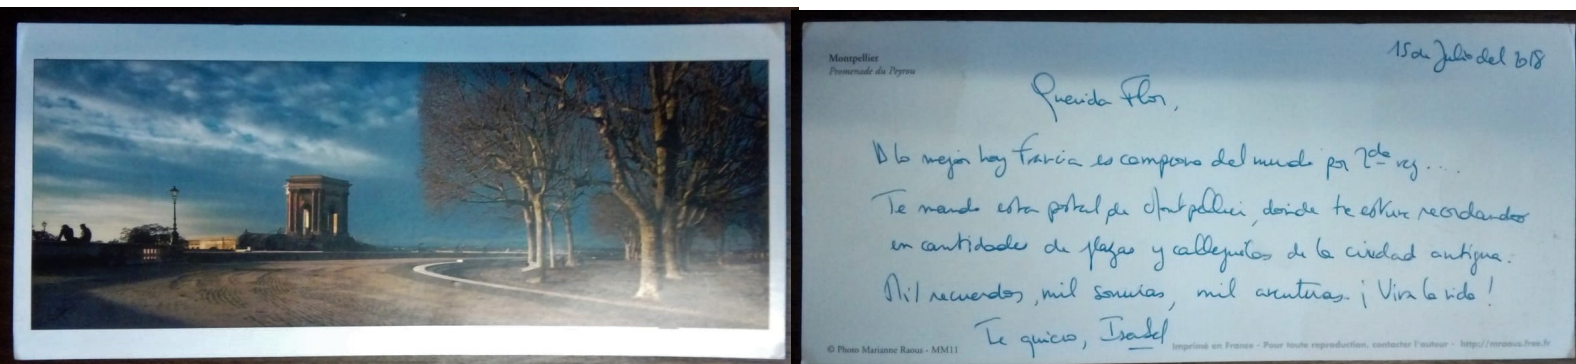 Montpellier
Promenade du Peyrou
15 de Julio del 2018
Querida Flor,
A lo mejor hoy Francia es campeona del mundo por 2da vez...
Te mando esta postal de Montpellier, donde te estuve recordando
en cantidades de plazas y callejuelas de la ciudad antigua.
Mil recuerdos, mil sonrisas, mil aventuras. ¡Viva la vida!
Te quiero, Isabel
© Photo Marianne Raous - MM11
Imprimé en France - Pour toute reproduction, contacter l'auteur - http://mraous.free.fr